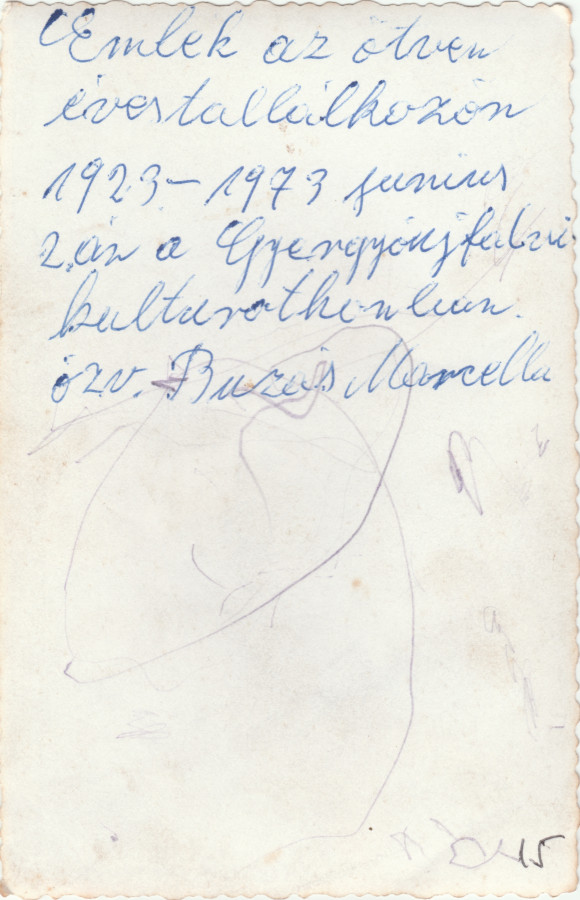 Emlék az ötven
évestallálkozón
1923-1973 junius
2.án a Gyergyóujfalvi
kulturothonban.
özv. Buzás Marcella
15